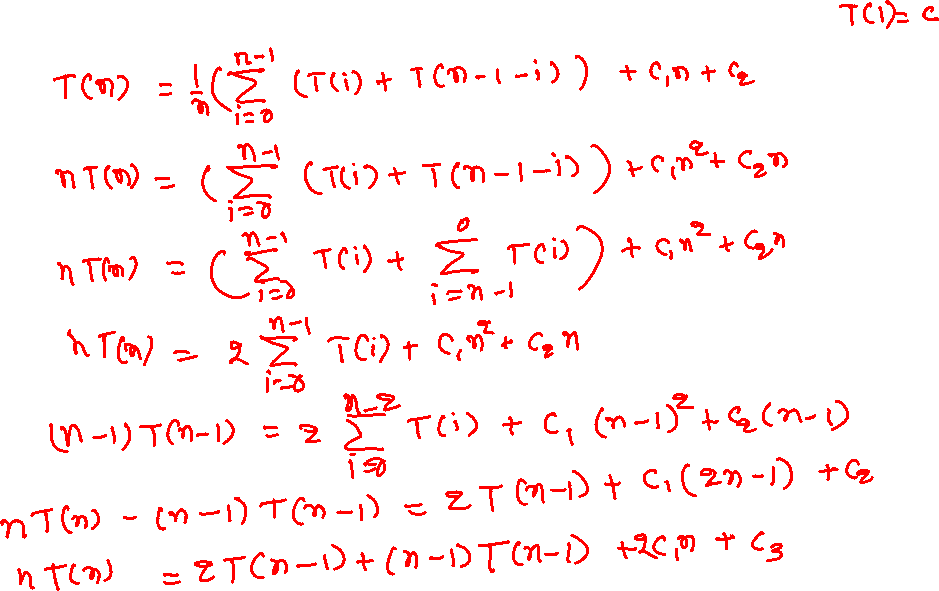 T(1) = c
T(n) = \frac{1}{n} ( \sum_{i=0}^{n-1} (T(i) + T(n-1-i)) ) + c_1 n + c_2
n T(n) = ( \sum_{i=0}^{n-1} (T(i) + T(n-1-i)) ) + c_1 n^2 + c_2 n
n T(n) = ( \sum_{i=0}^{n-1} T(i) + \sum_{i=n-1}^{0} T(i) ) + c_1 n^2 + c_2 n
n T(n) = 2 \sum_{i=0}^{n-1} T(i) + c_1 n^2 + c_2 n
(n-1) T(n-1) = 2 \sum_{i=0}^{n-2} T(i) + c_1 (n-1)^2 + c_2 (n-1)
n T(n) - (n-1) T(n-1) = 2 T(n-1) + c_1 (2n-1) + c_2
n T(n) = 2 T(n-1) + (n-1) T(n-1) + 2 c_1 n + c_3